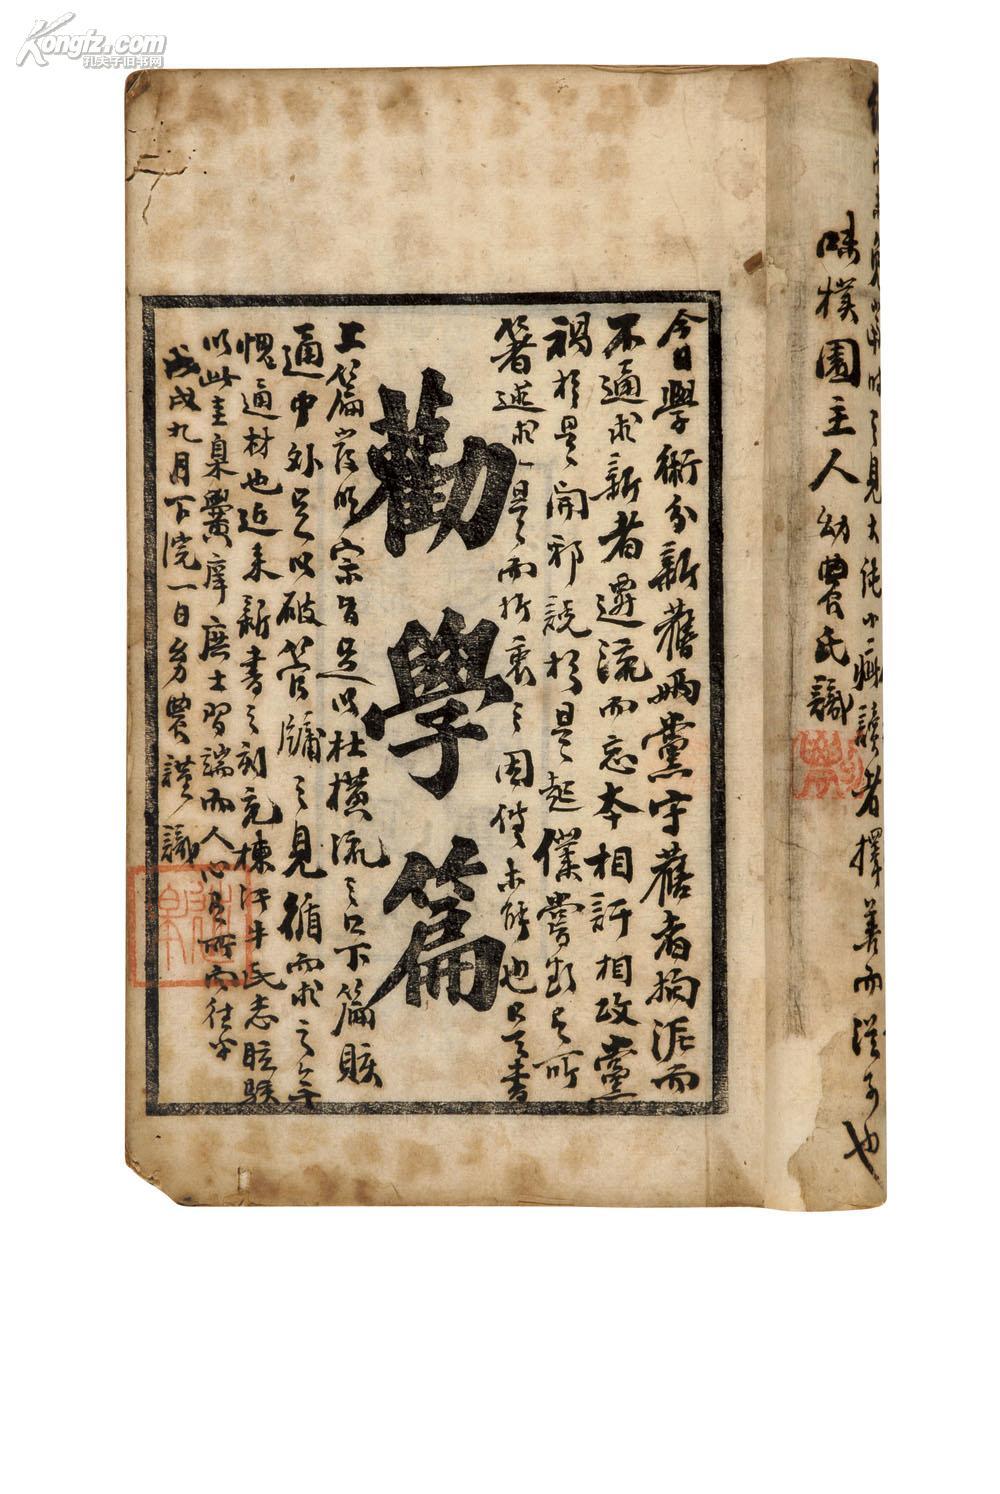 Kongfz.com
孔夫子旧书网
味樸園主人幼農氏識
讀者擇善而從可也
今日學術分新舊兩黨守舊者拘泥而
不通求新者遷流而忘本相訐相攻黨
禍於是開邪說於是起僕嘗出其所
著述求是而折衷之固猶未暇也是書
勸學篇
上篇以宗旨足以杜橫流之口下篇賅
通中外足以破管牖之見循而求之無
愧通材也近來新書之刻充棟汗牛民志眩駭
以此圭臬冀庠庶士習端而人心有所向往乎
戊戌九月下浣一日幼農讚識